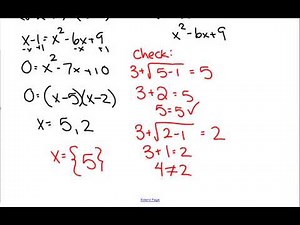 x-1 = x²-6x+9
-x +1 -x +1
0 = x²-7x+10
0 = (x-5)(x-2)
x = 5, 2
x = {5}
x²-6x+9
Check:
3+√5-1 = 5
3+2 = 5
5 = 5 ✓
3+√2-1 = 2
3+1 = 2
4 ≠ 2